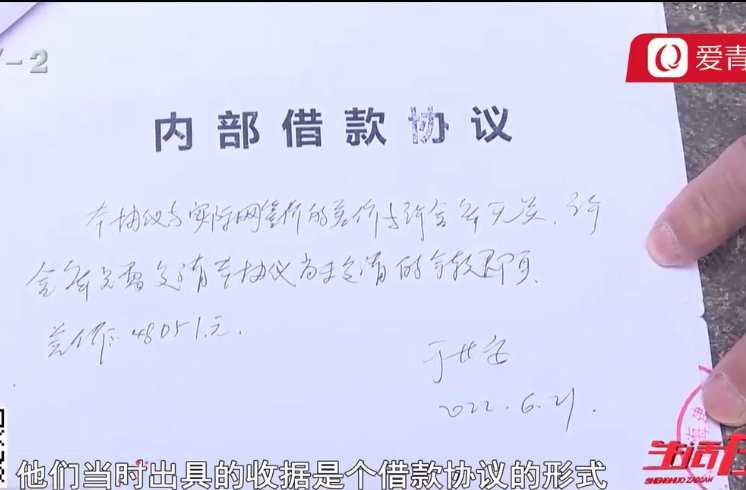 V-2
爱青
内部借款协议
本协议与实际网签价的差价与许金奎无关,许
金奎只需交清本协议尚未交清的余款即可.
差价:48051元.
2022.6.21.
他们当时出具的收据是个借款协议的形式
生活
SHENGHUO ZAIXIAN